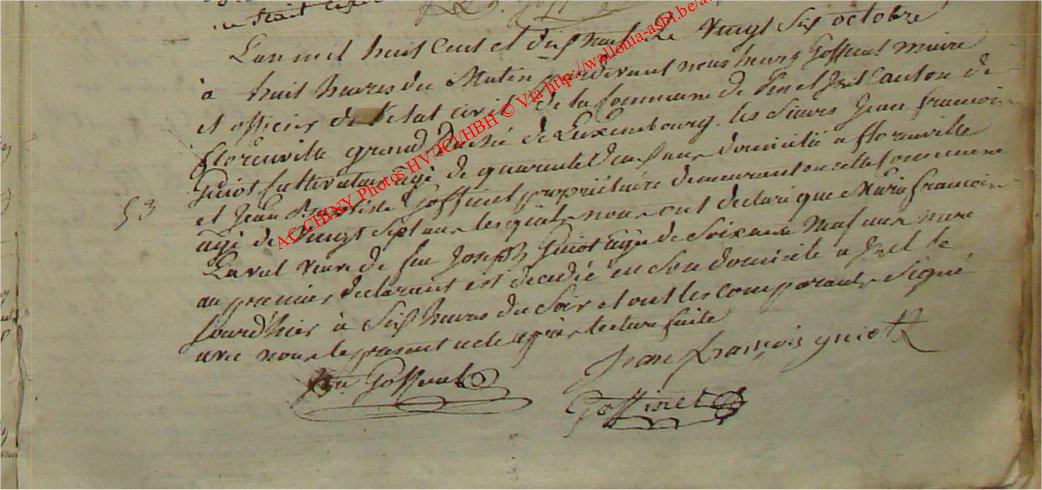 L'an mil huit cent et dix le vingt six octobre
à huit heures du Matin pardevant nous henry Goffinet maire
et officier de l'Etat civil de la Commune de Pin et Izel Canton de
florenville grand Duché de Luxembourg. les Sieurs Jean francois
Guiot cultivateur agé de quarante deux ans domicilié a florenville
et Jean Baptiste Goffinet propriétaire demeurant en cette Commune
agé de vingt sept ans les quels nous ont declaré que Marie francoise
Laval veuve de feu Joseph Guiot agée de Soixante neuf ans mere
au premier declarant est decedée en Son domicile a Izel le
jourd'hier à Six heures du Soir et ont les comparants Signé
avec nous le present acte après lecture faite
53
Jean françois guiot
hn Goffinet
Goffinet
ACCHINY Photos HV2CLHBH © Via http://wallonia-asbl.be/a